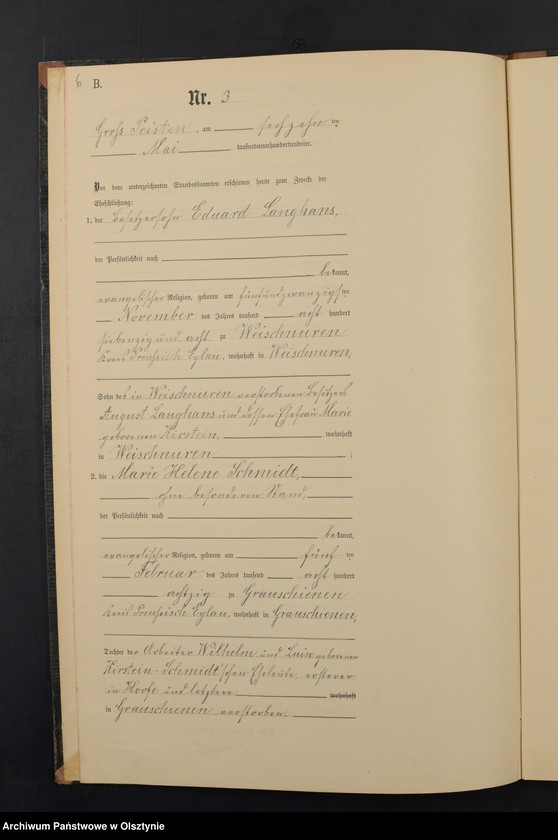 6 B.
Nr. 3
Gross Peisten, am sechzehn ten
Mai tausendneunhundertundvier.
Vor dem unterzeichneten Standesbeamten erschienen heute zum Zwecke der
Eheschließung:
1. der Besitzersohn Eduard Langhans,
der Persönlichkeit nach
bekannt,
evangelischer Religion, geboren am fünfundzwanzigsten
November des Jahres tausend acht hundert
siebenzig und acht zu Weischnuren
Kreis Preußisch Eylau, wohnhaft in Weischnuren,
Sohn des in Weischnuren verstorbenen Besitzers
August Langhans und dessen Ehefrau Marie
geborenen Kirstein, wohnhaft
in Weischnuren ;
2. die Marie Helene Schmidt,
ohne besonderen Stand,
der Persönlichkeit nach
bekannt,
evangelischer Religion, geboren am fünf ten
Februar des Jahres tausend acht hundert
achtzig zu Grauschienen
Kreis Preußisch Eylau, wohnhaft in Grauschienen,
Tochter der Arbeiter Wilhelm und Luise geborenen
Kirstein-Schmidt'schen Eheleute, ersterer
in Hoofe und letztere wohnhaft
in Grauschienen verstorben.
Archiwum Państwowe w Olsztynie